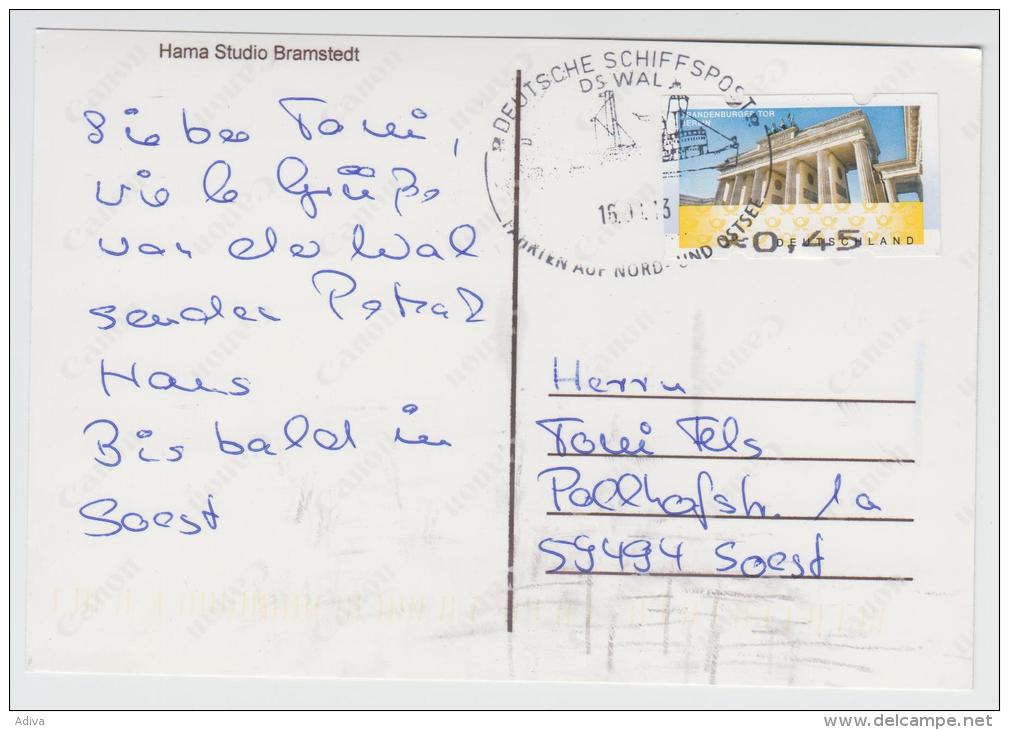 Hama Studio Bramstedt
Liebe Toni,
viele Grüße
von der Wal
senden Petra &
Hans
Bis bald in
Soest
DEUTSCHE SCHIFFSPOST
DS WAL
FAHRTEN AUF NORD- UND OSTSEE
BRANDENBURGER TOR
BERLIN
0,45
DEUTSCHLAND
Herrn
Toni Fels
59494 Soest
Canon
Adiva
www.delcampe.net